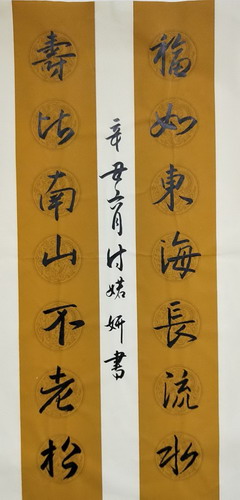 福如東海長流水
壽比南山不老松
辛丑六月付婼妍書